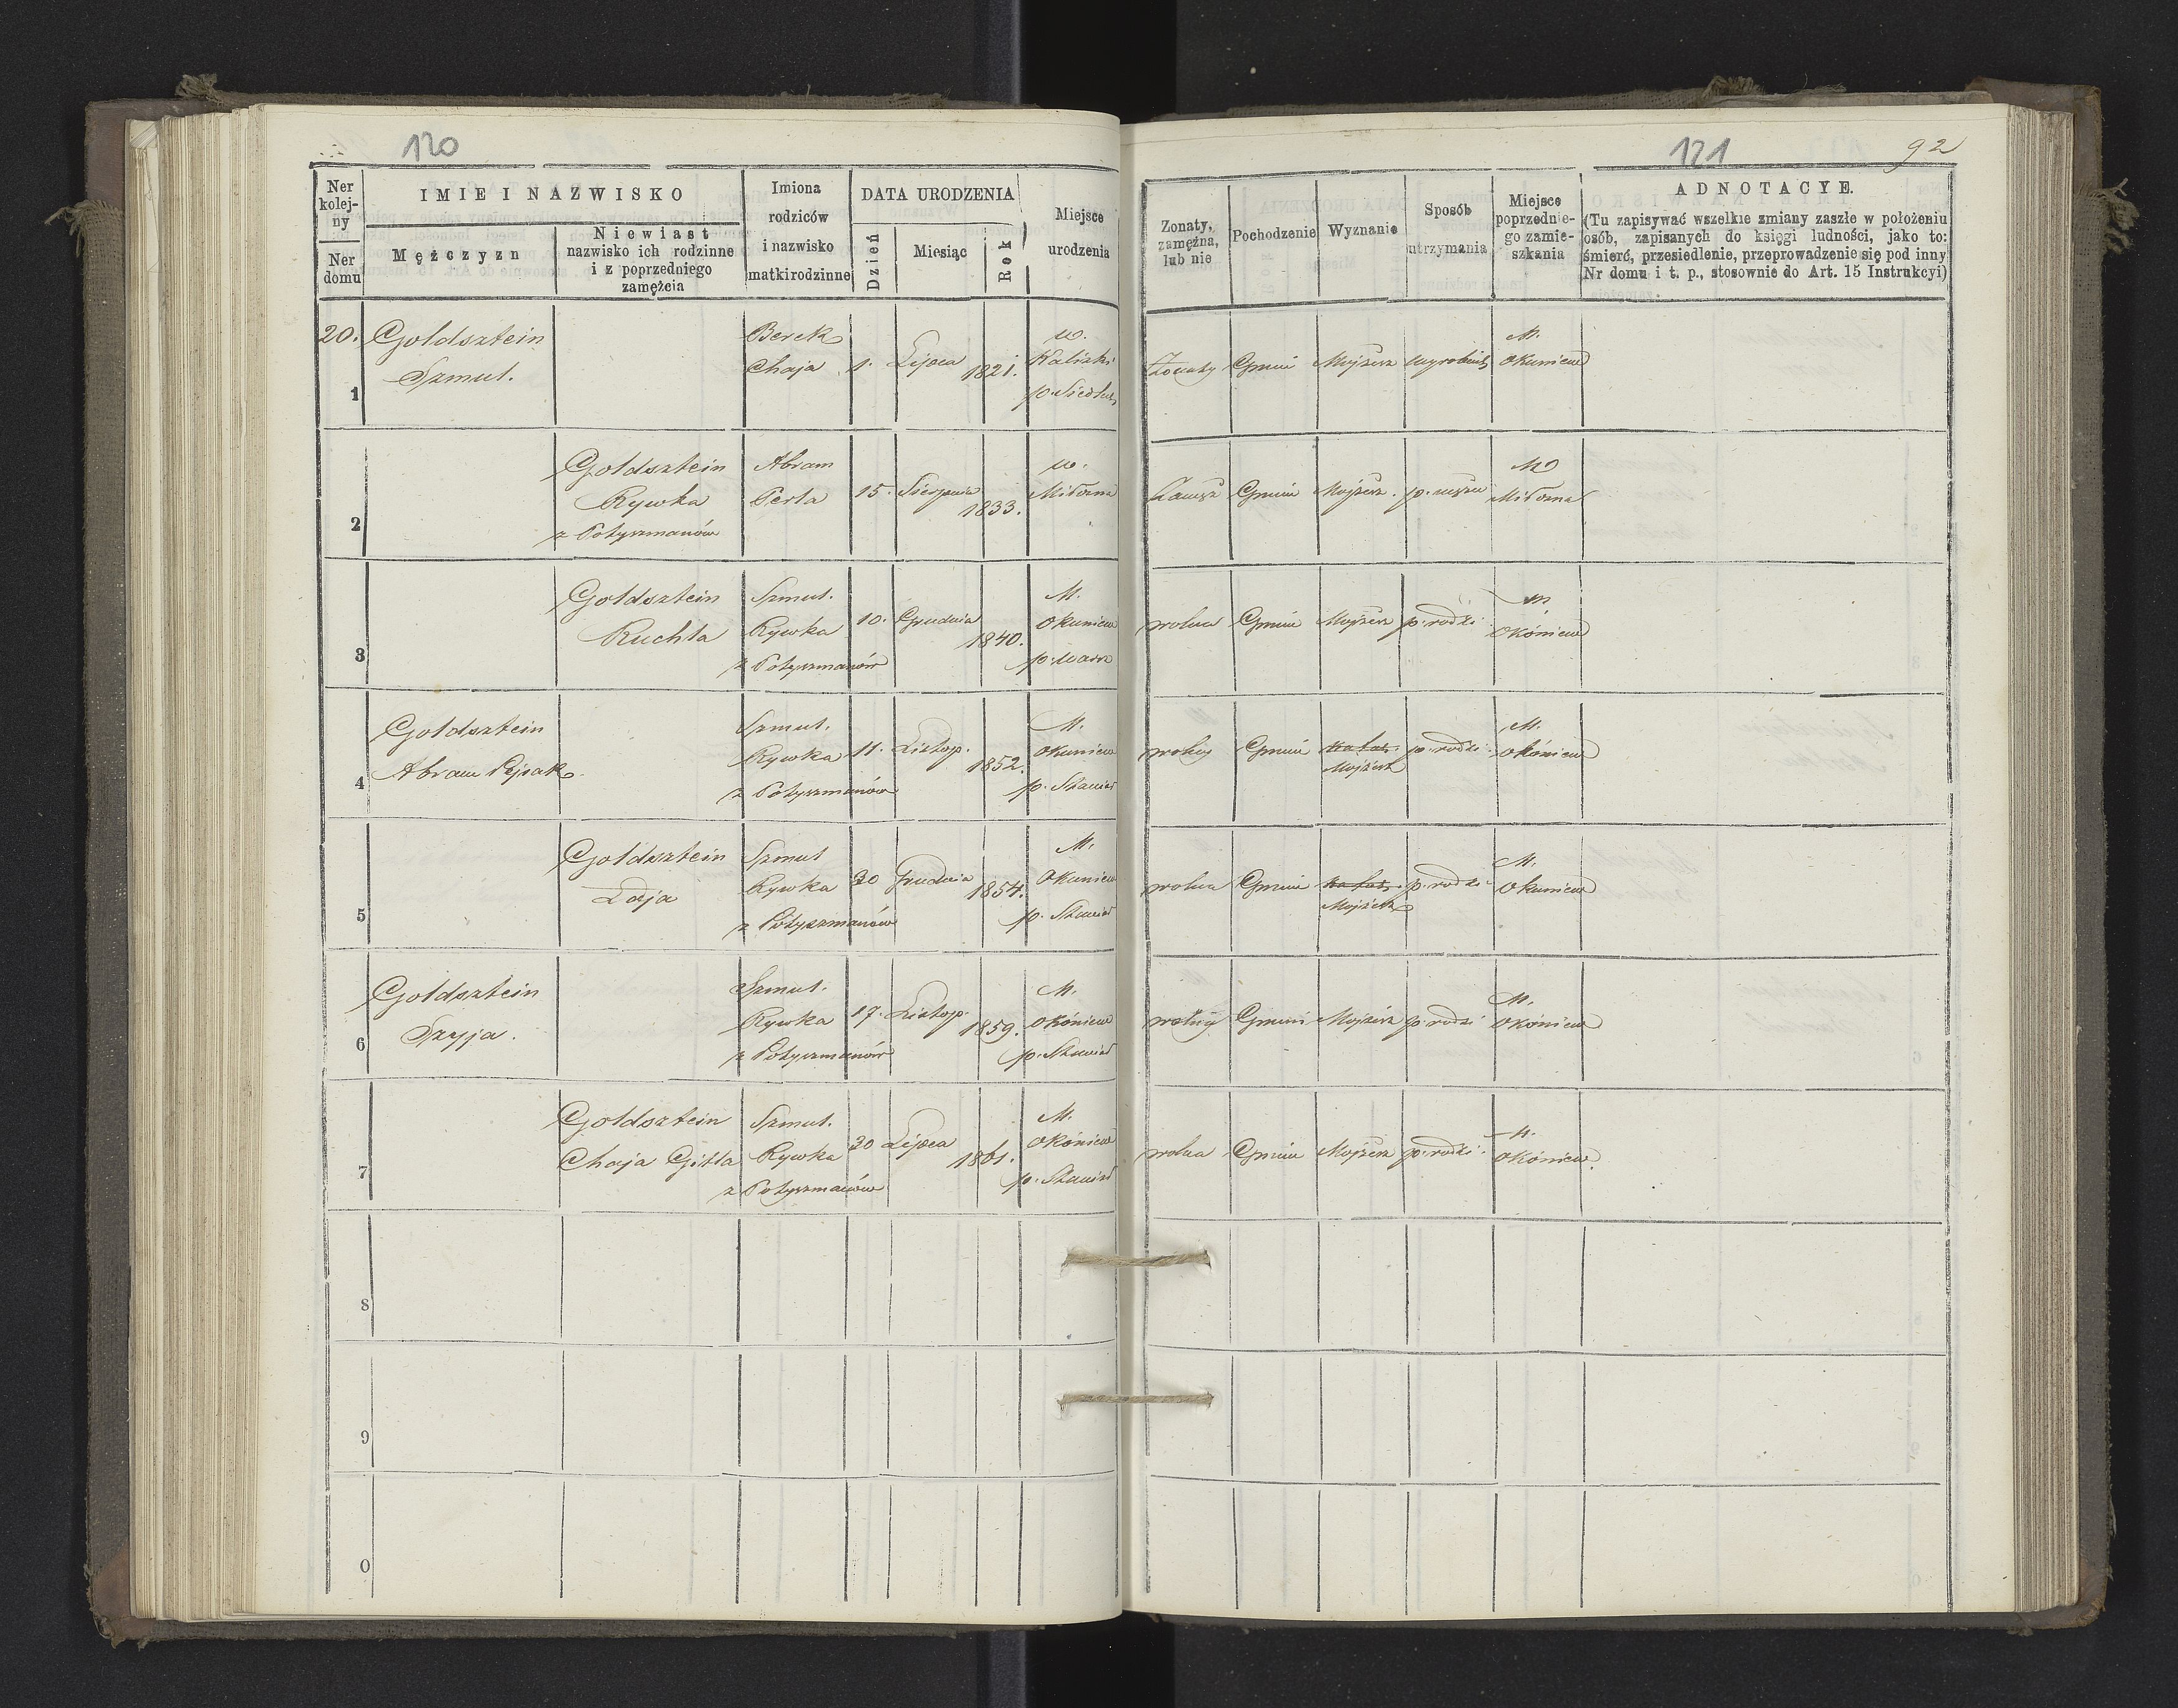 120
Ner kolejny
Ner domu
IMIE I NAZWISKO
Mężczyzn
Niewiast
nazwisko ich rodzinne
i z poprzedniego
zamężcia
Imiona
rodziców
i nazwisko
matki rodzinne
DATA URODZENIA
Dzień
Miesiąc
Rok
Miejsce
urodzenia
20.
1
Goldsztein
Szmul.
Berek
Chaja
1.
Lipca
1821.
w.
Kaliski
p. Siedlec
2
Goldsztein
Rywka
z Potyszmanów
Abram
Perla
15.
Sierpnia
1833.
w.
Miłosna
3
Goldsztein
Ruchla
Szmul.
Rywka
z Potyszmanów
10.
Grudnia
1840.
M.
Okuniew
p. Warsz
4
Goldsztein
Abram Pejsak
Szmul.
Rywka
z Potyszmanów
11.
Listop.
1852.
M.
Okuniew
p. Stanisł
5
Goldsztein
Łaja
Szmul
Rywka
z Potyszmanów
20
Grudnia
1854.
M.
Okuniew
p. Stanisł
6
Goldsztein
Szyja.
Szmul.
Rywka
z Potyszmanów
17.
Listop.
1859.
M.
Okóniew
p. Stanisł
7
Goldsztein
Chaja Gitla
Szmul.
Rywka
z Potyszmanów
20
Lipca
1861.
M.
Okóniew
p. Stanisł
8
9
0
121
92
Zonaty,
zamężna,
lub nie
Pochodzenie
Wyznanie
Sposób
utrzymania
Miejsce
poprzednie-
go zamie-
szkania
ADNOTACYE.
(Tu zapisywać wszelkie zmiany zaszłe w położeniu
osób, zapisanych do księgi ludności, jako to:
śmierć, przesiedlenie, przeprowadzenie się pod inny
Nr domu i t. p., stosownie do Art. 15 Instrukcyi)
Żonaty
Gmin
Mojżesz
wyrobnik
M.
Okuniew
Zamęż
Gmin
Mojżesz.
p. mężu
Miłosna
wolna
Gmin
Mojżesz
p. rodzi
m
Okóniew
wolny
Gmin
Mojżesz
p. rodzi
M.
Okóniew
wolna
Gmin
Mojżesz
p. rodzi
M.
Okuniew
wolny
Gmin
Mojżesz
p. rodzi
M.
Okóniew
wolna
Gmin
Mojżesz
p. rodzi
M.
Okóniew.